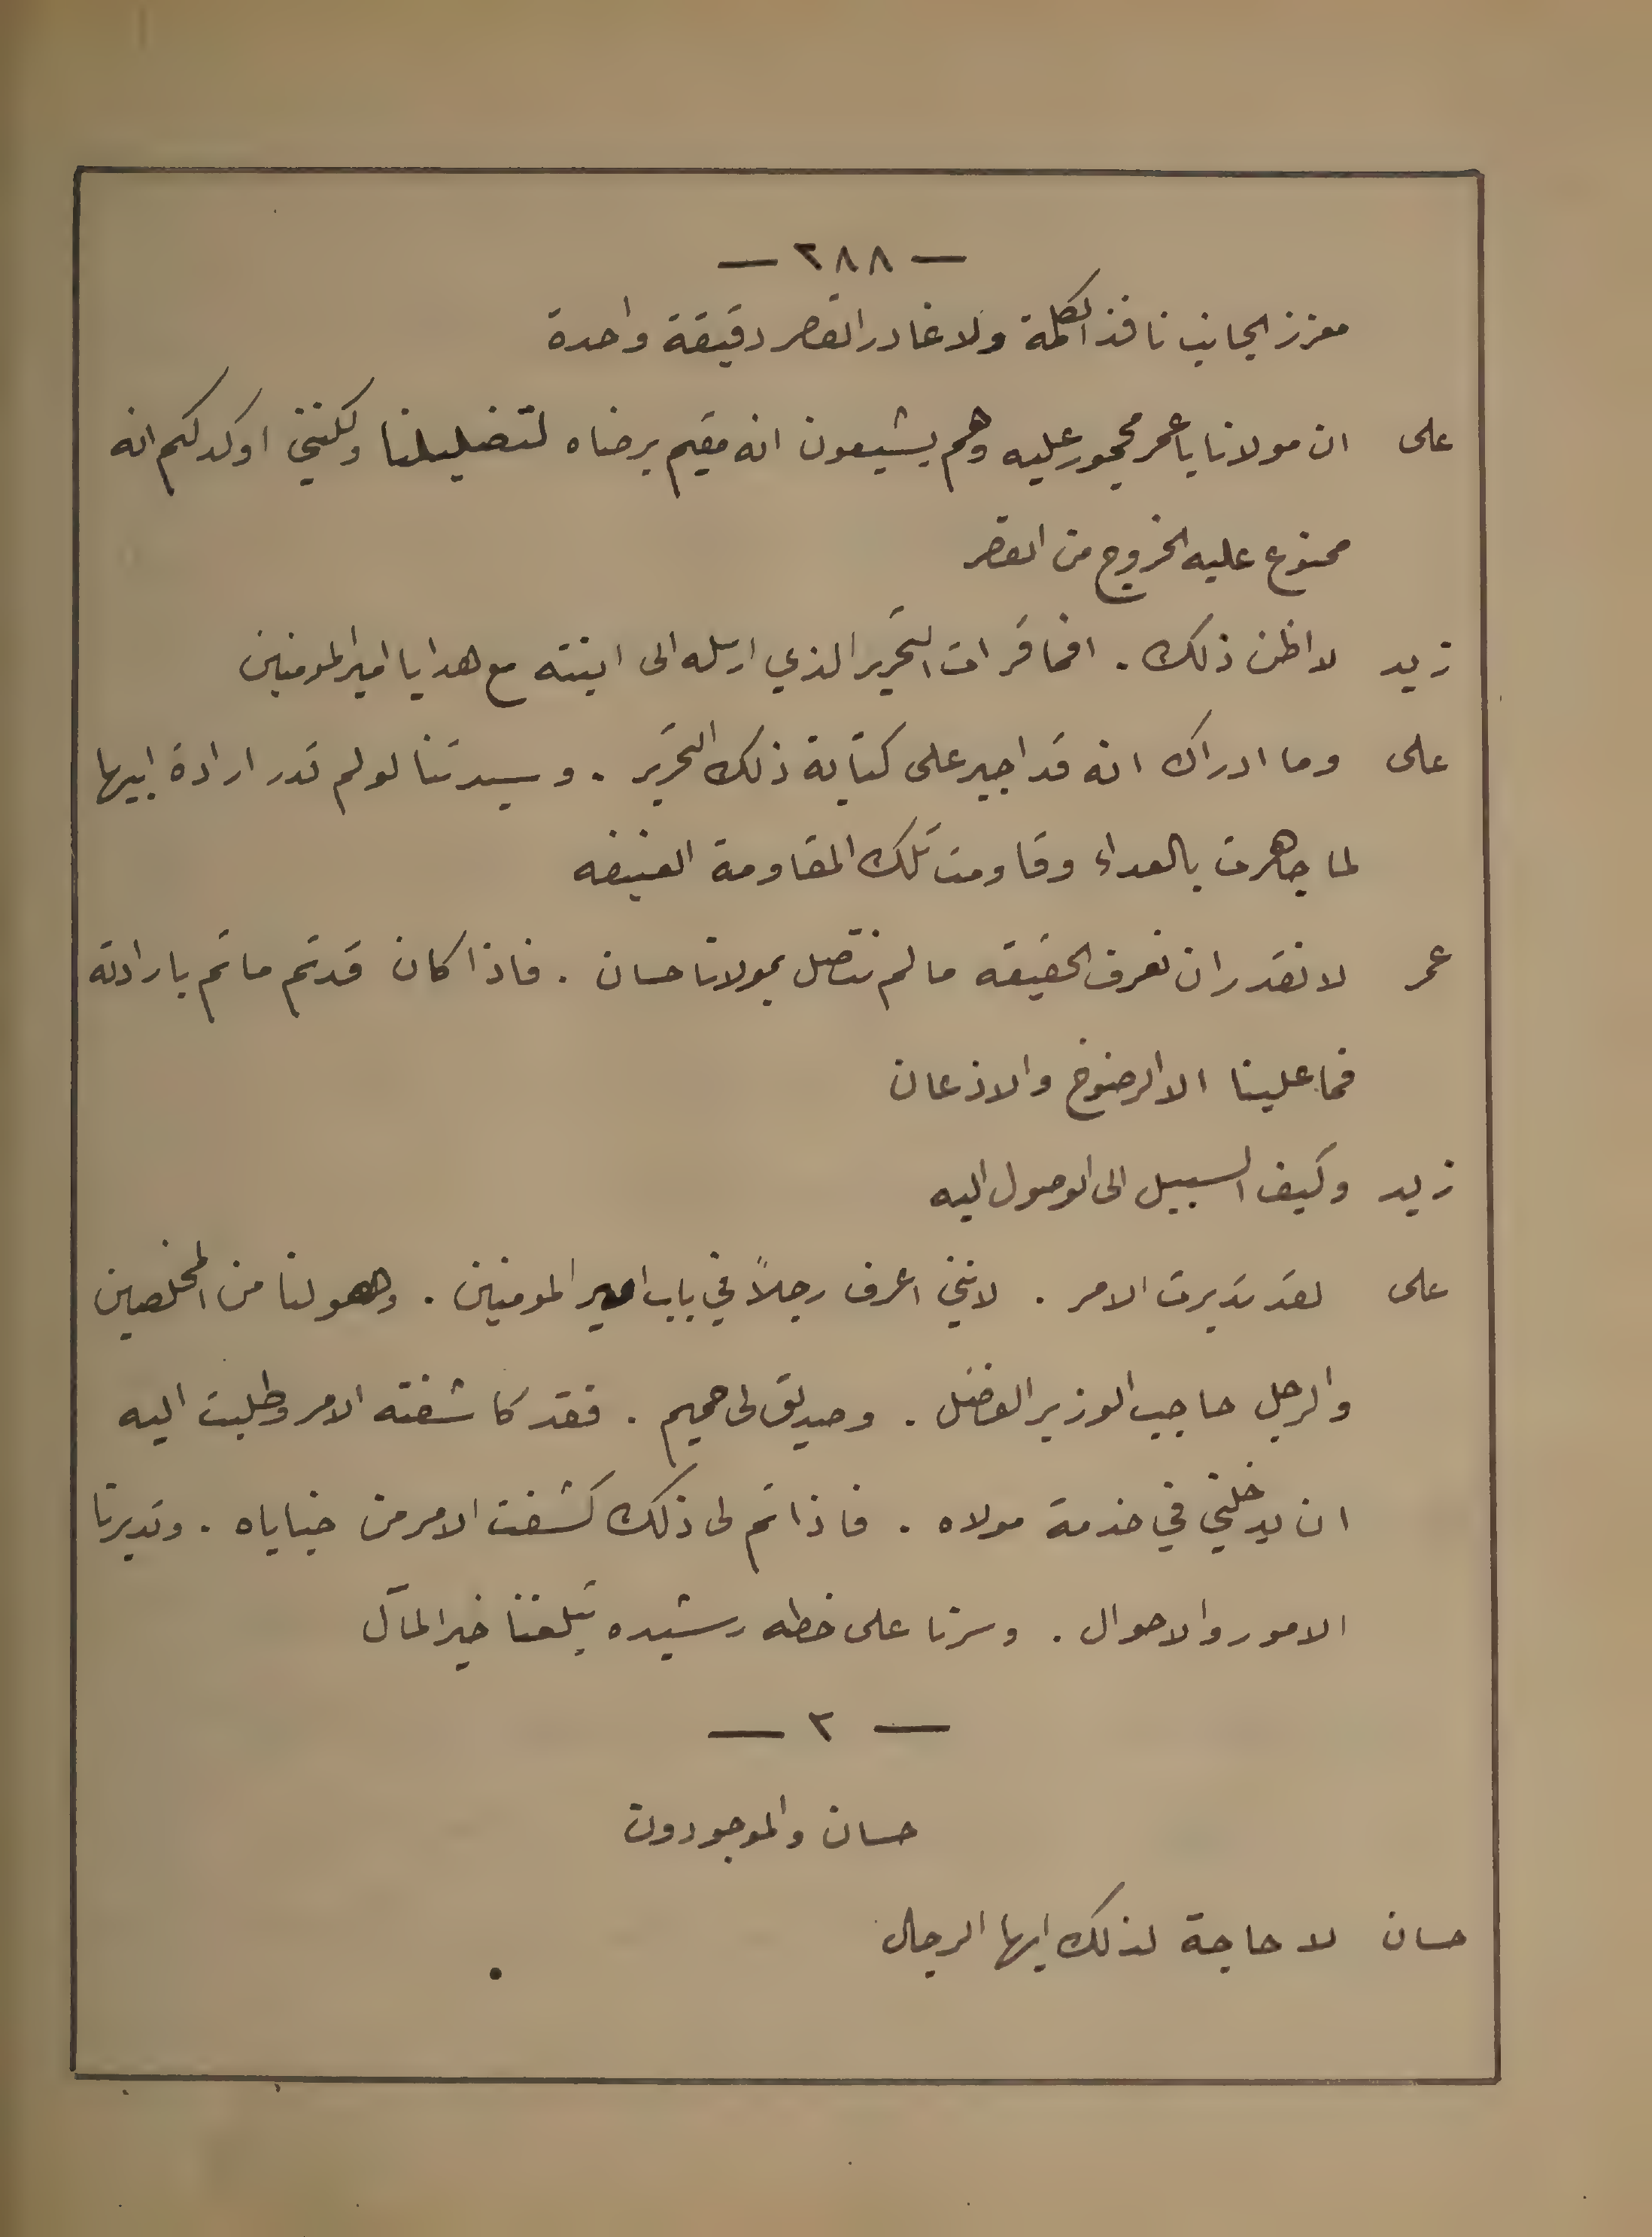 — ٢٨٨ —
معزز الجانب نافذ الكلمة ولا غادر القصر دقيقة واحدة
على ان مولانا يا عمر محجور عليه وهم يشيعون انه مقيم برضاه لتضليلنا ولكنني اوكد لكم انه
ممنوع عليه الخروج من القصر
زيد لا اظن ذلك . افما قرات التحرير الذي ارسله الى ابنته مع هدايا امير المومنين
على وما ادراك انه قد اجبر على كتابة ذلك التحرير . وسيدتنا لو لم تدر ارادة ابيها
لما جاهرت بالعداء وقاومت تلك المقاومة العنيفه
عمر لا نقدر ان نعرف الحقيقه ما لم نتصل بمولانا حسان . فاذا كان قد تم ما تم بارادته
فما علينا الا الرضوخ والاذعان
زيد وكيف السبيل الى الوصول اليه
على لقد تدبرت الامر . لانني اعرف رجلاً في باب امير المومنين . وهو لنا من المخلصين
والرجل حاجب الوزير الفضل . وصديق لى حميم . فقد كاشفته الامر وطلبت اليه
ان يدخلني في خدمة مولاه . فاذا تم لى ذلك كشفت الامر من خباياه . وتدبرنا
الامور والاحوال . وسرنا على خطه رشيده تبلغنا خير المآل
— ٢ —
حسان والموجودون
حسان لا حاجة لذلك ايها الرجال